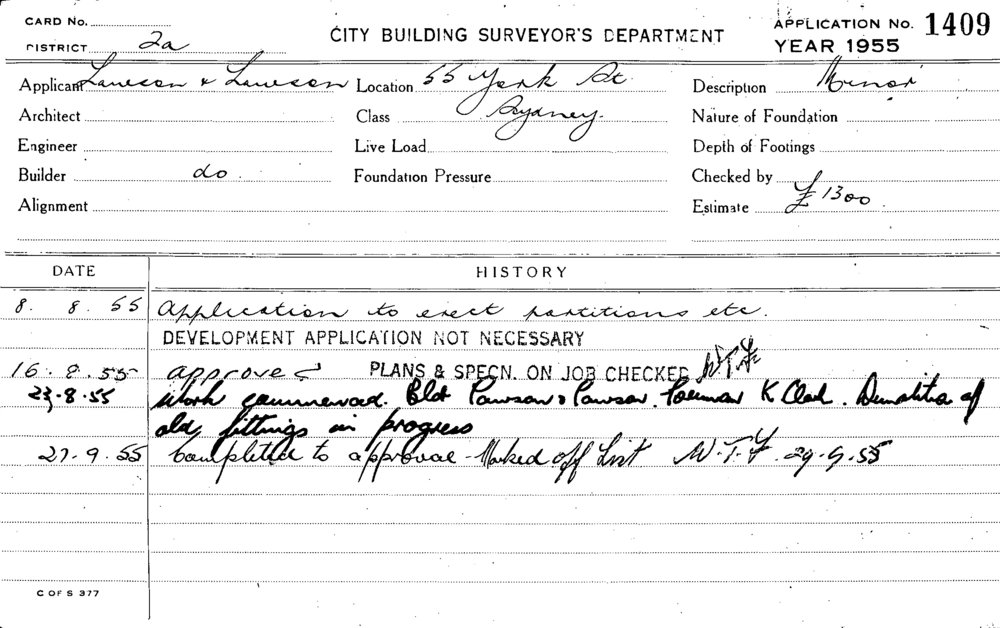 CARD No.
DISTRICT 2a
CITY BUILDING SURVEYOR'S DEPARTMENT
APPLICATION No. 1409
YEAR 1955
Applicant Lawson & Lawson Location 55 York St Description Minor
Architect Class Sydney. Nature of Foundation
Engineer Live Load Depth of Footings
Builder do. Foundation Pressure Checked by
Alignment Estimate £1300.
DATE HISTORY
8. 8. 55 Application to erect partitions etc.
DEVELOPMENT APPLICATION NOT NECESSARY
16.8.55 approved PLANS & SPECN. ON JOB CHECKED W.T.F.
23.8.55 Work commenced. Bldr Pawson & Pawson. Foreman K Clark. Demolition of
old fittings in progress
27.9.55 Completed to approval Marked off List W.T.F. 29.9.55
C OF S 377